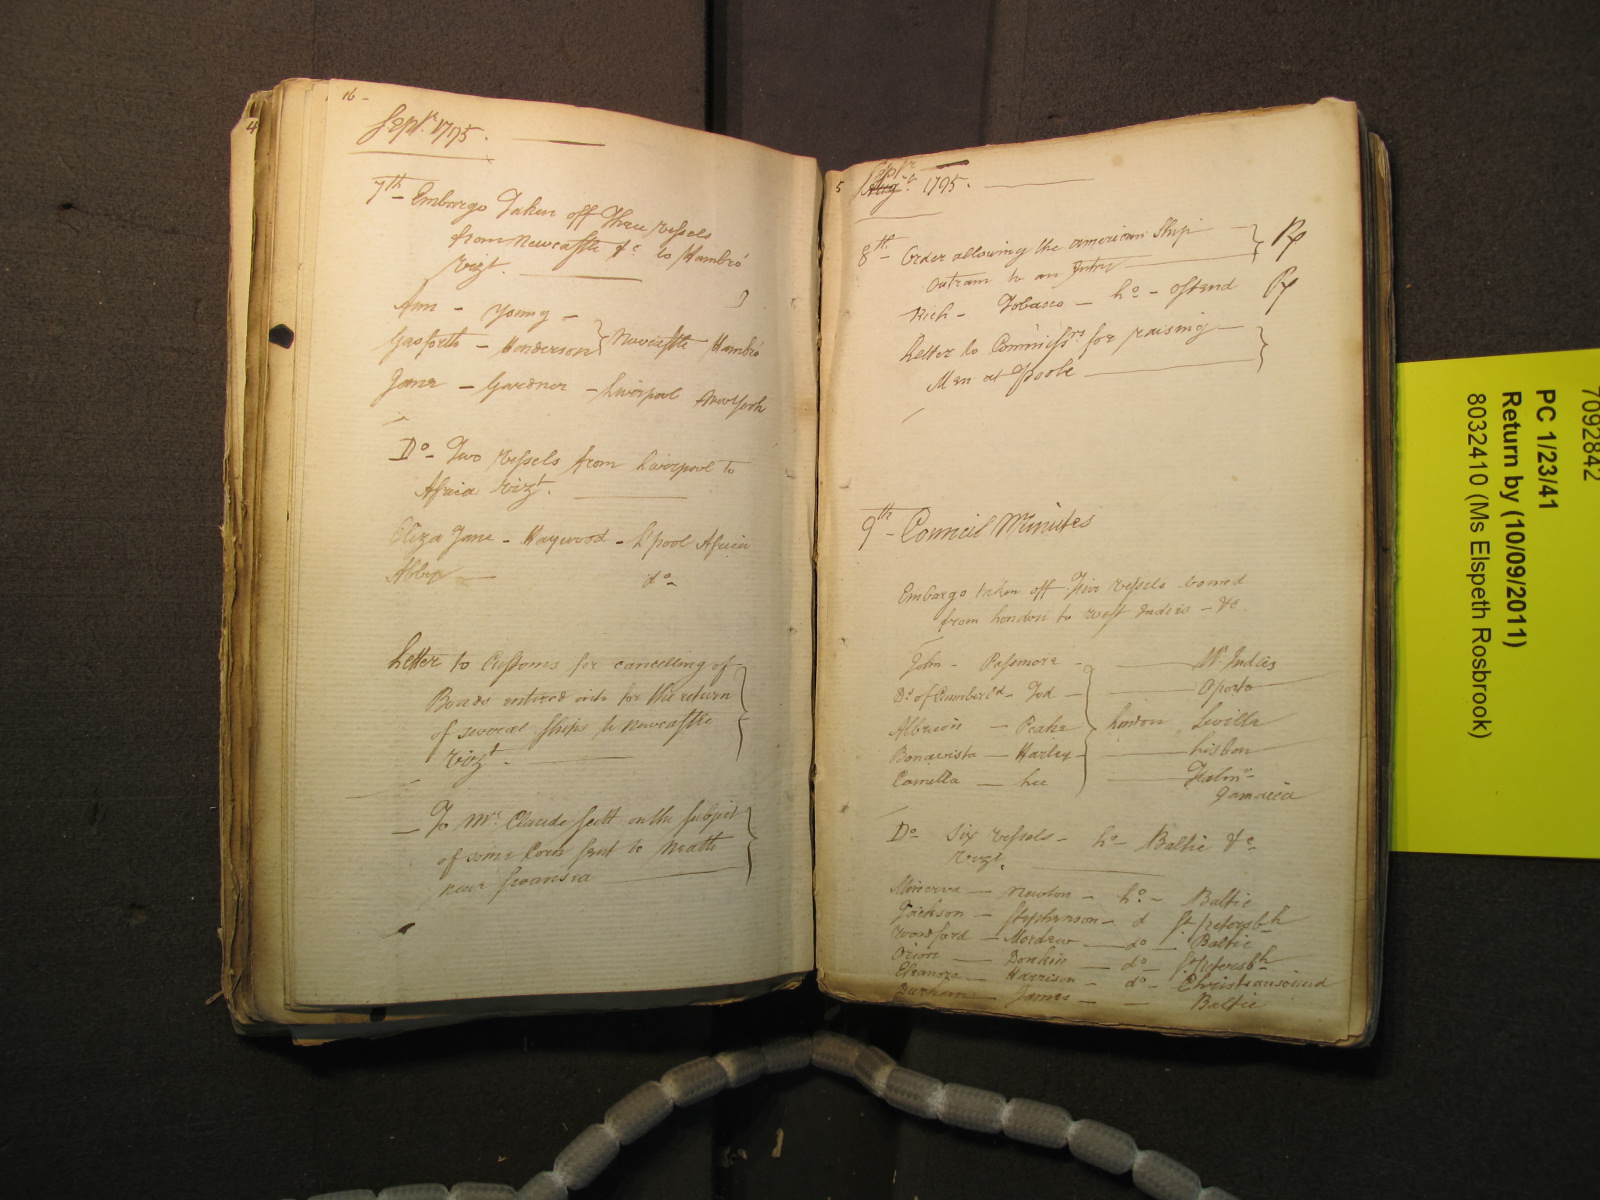 16 -
4
Septr. 1795.
7th - Embargo Taken off Three Vessels
from Newcastle &c to Hambro'
Vizt.
Ann - Young -
Gosforth - Henderson } Newcastle Hambro'
Jane - Gardner - Liverpool New York
Do - Two Vessels from Liverpool to
Africa Vizt.
Eliza Jane - Haywood - L'pool Africa
Abbey do
Letter to Customs for cancelling of
Bonds entered into for the return
of several Ships to Newcastle
Vizt.
- To Mr. Claude Scott on the Subject
of some Corn sent to Neath
near Swansea
5
Septr.
Augt. 1795.
8th - Order allowing the american Ship
Outram to an Entry
Rich - Tobacco - Lo - Ostend
Letter to Commissrs for raising
Men at Poole
9th - Council Minutes
Embargo taken off Five Vessels bound
from London to West Indies - &c
John - Passmore - Wt. Indies
Ds. of Cumberld - Tod - Oporto
Albion - Peake London Seville
Bonavista - Harley - Lisbon
Camilla - Lee Falmo -
Jamaica
Do Six Vessels - Lo - Baltic &c
Vizt.
Minerva - Newton - Lo - Baltic
Jackson - Stephenson - d St. Petersbh
Woodford - Mordew - do - Baltic
Orion - Donkin - do - St. Petersbh
Eleanora - Harrison - do - Christiansound
Durham - James - - Baltic
7092842
PC 1/23/41
Return by (10/09/2011)
8032410 (Ms Elspeth Rosbrook)